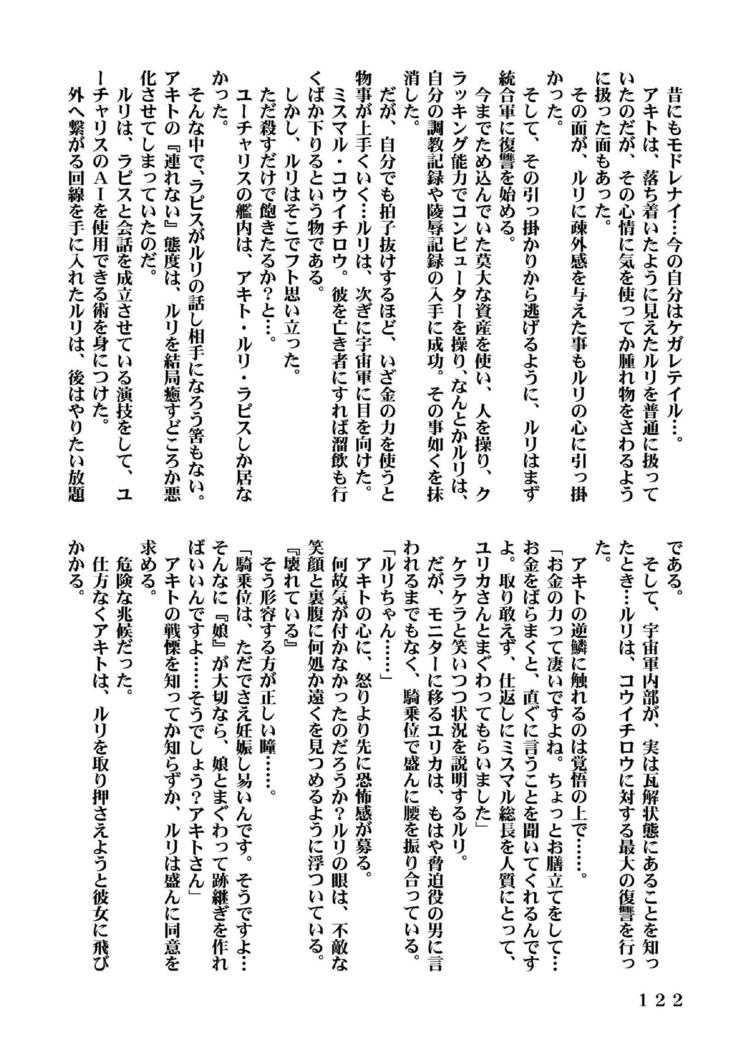 昔にもモドレナイ…今の自分はケガレテイル…。
アキトは、落ち着いたように見えたルリを普通に扱って
いたのだが、その心情に気を使ってか腫れ物をさわるよう
に扱った面もあった。
その面が、ルリに疎外感を与えた事もルリの心に引っ掛
かった。
そして、その引っ掛かりから逃げるように、ルリはまず
統合軍に復讐を始める。
今までため込んでいた莫大な資産を使い、人を操り、ク
ラッキング能力でコンピューターを操り、なんとかルリは、
自分の調教記録や陵辱記録の入手に成功。その事如くを抹
消した。
だが、自分でも拍子抜けするほど、いざ金の力を使うと
物事が上手くいく…ルリは、次ぎに宇宙軍に目を向けた。
ミスマル・コウイチロウ。彼を亡き者にすれば溜飲も行
くばか下りるという物である。
しかし、ルリはそこでフト思い立った。
ただ殺すだけで飽きたるか？と…。
ユーチャリスの艦内は、アキト・ルリ・ラピスしか居な
かった。
そんな中で、ラピスがルリの話し相手になろう筈もない。
アキトの『連れない』態度は、ルリを結局癒すどころか悪
化させてしまっていたのだ。
ルリは、ラピスと会話を成立させている演技をして、ユ
ーチャリスのＡＩを使用できる術を身につけた。
外へ繋がる回線を手に入れたルリは、後はやりたい放題
である。
そして、宇宙軍内部が、実は瓦解状態にあることを知っ
たとき…ルリは、コウイチロウに対する最大の復讐を行っ
た。
アキトの逆鱗に触れるのは覚悟の上で……。
「お金の力って凄いですよね。ちょっとお膳立てをして…
お金をばらまくと、直ぐに言うことを聞いてくれるんです
よ。取り敢えず、仕返しにミスマル総長を人質にとって、
ユリカさんとまぐわってもらいました」
ケラケラと笑いつつ状況を説明するルリ。
だが、モニターに移るユリカは、もはや脅迫役の男に言
われるまでもなく、騎乗位で盛んに腰を振り合っている。
「ルリちゃん……」
アキトの心に、怒りより先に恐怖感が募る。
何故気が付かなかったのだろうか？ルリの眼は、不敵な
笑顔と裏腹に何処か遠くを見つめるように浮ついている。
『壊れている』
そう形容する方が正しい瞳……。
「騎乗位は、ただでさえ妊娠し易いんです。そうですよ…
そんなに『娘』が大切なら、娘とまぐわって跡継ぎを作れ
ばいいんですよ……そうでしょう？アキトさん」
アキトの戦慄を知ってか知らずか、ルリは盛んに同意を
求める。
危険な兆候だった。
仕方なくアキトは、ルリを取り押さえようと彼女に飛び
かかる。
122